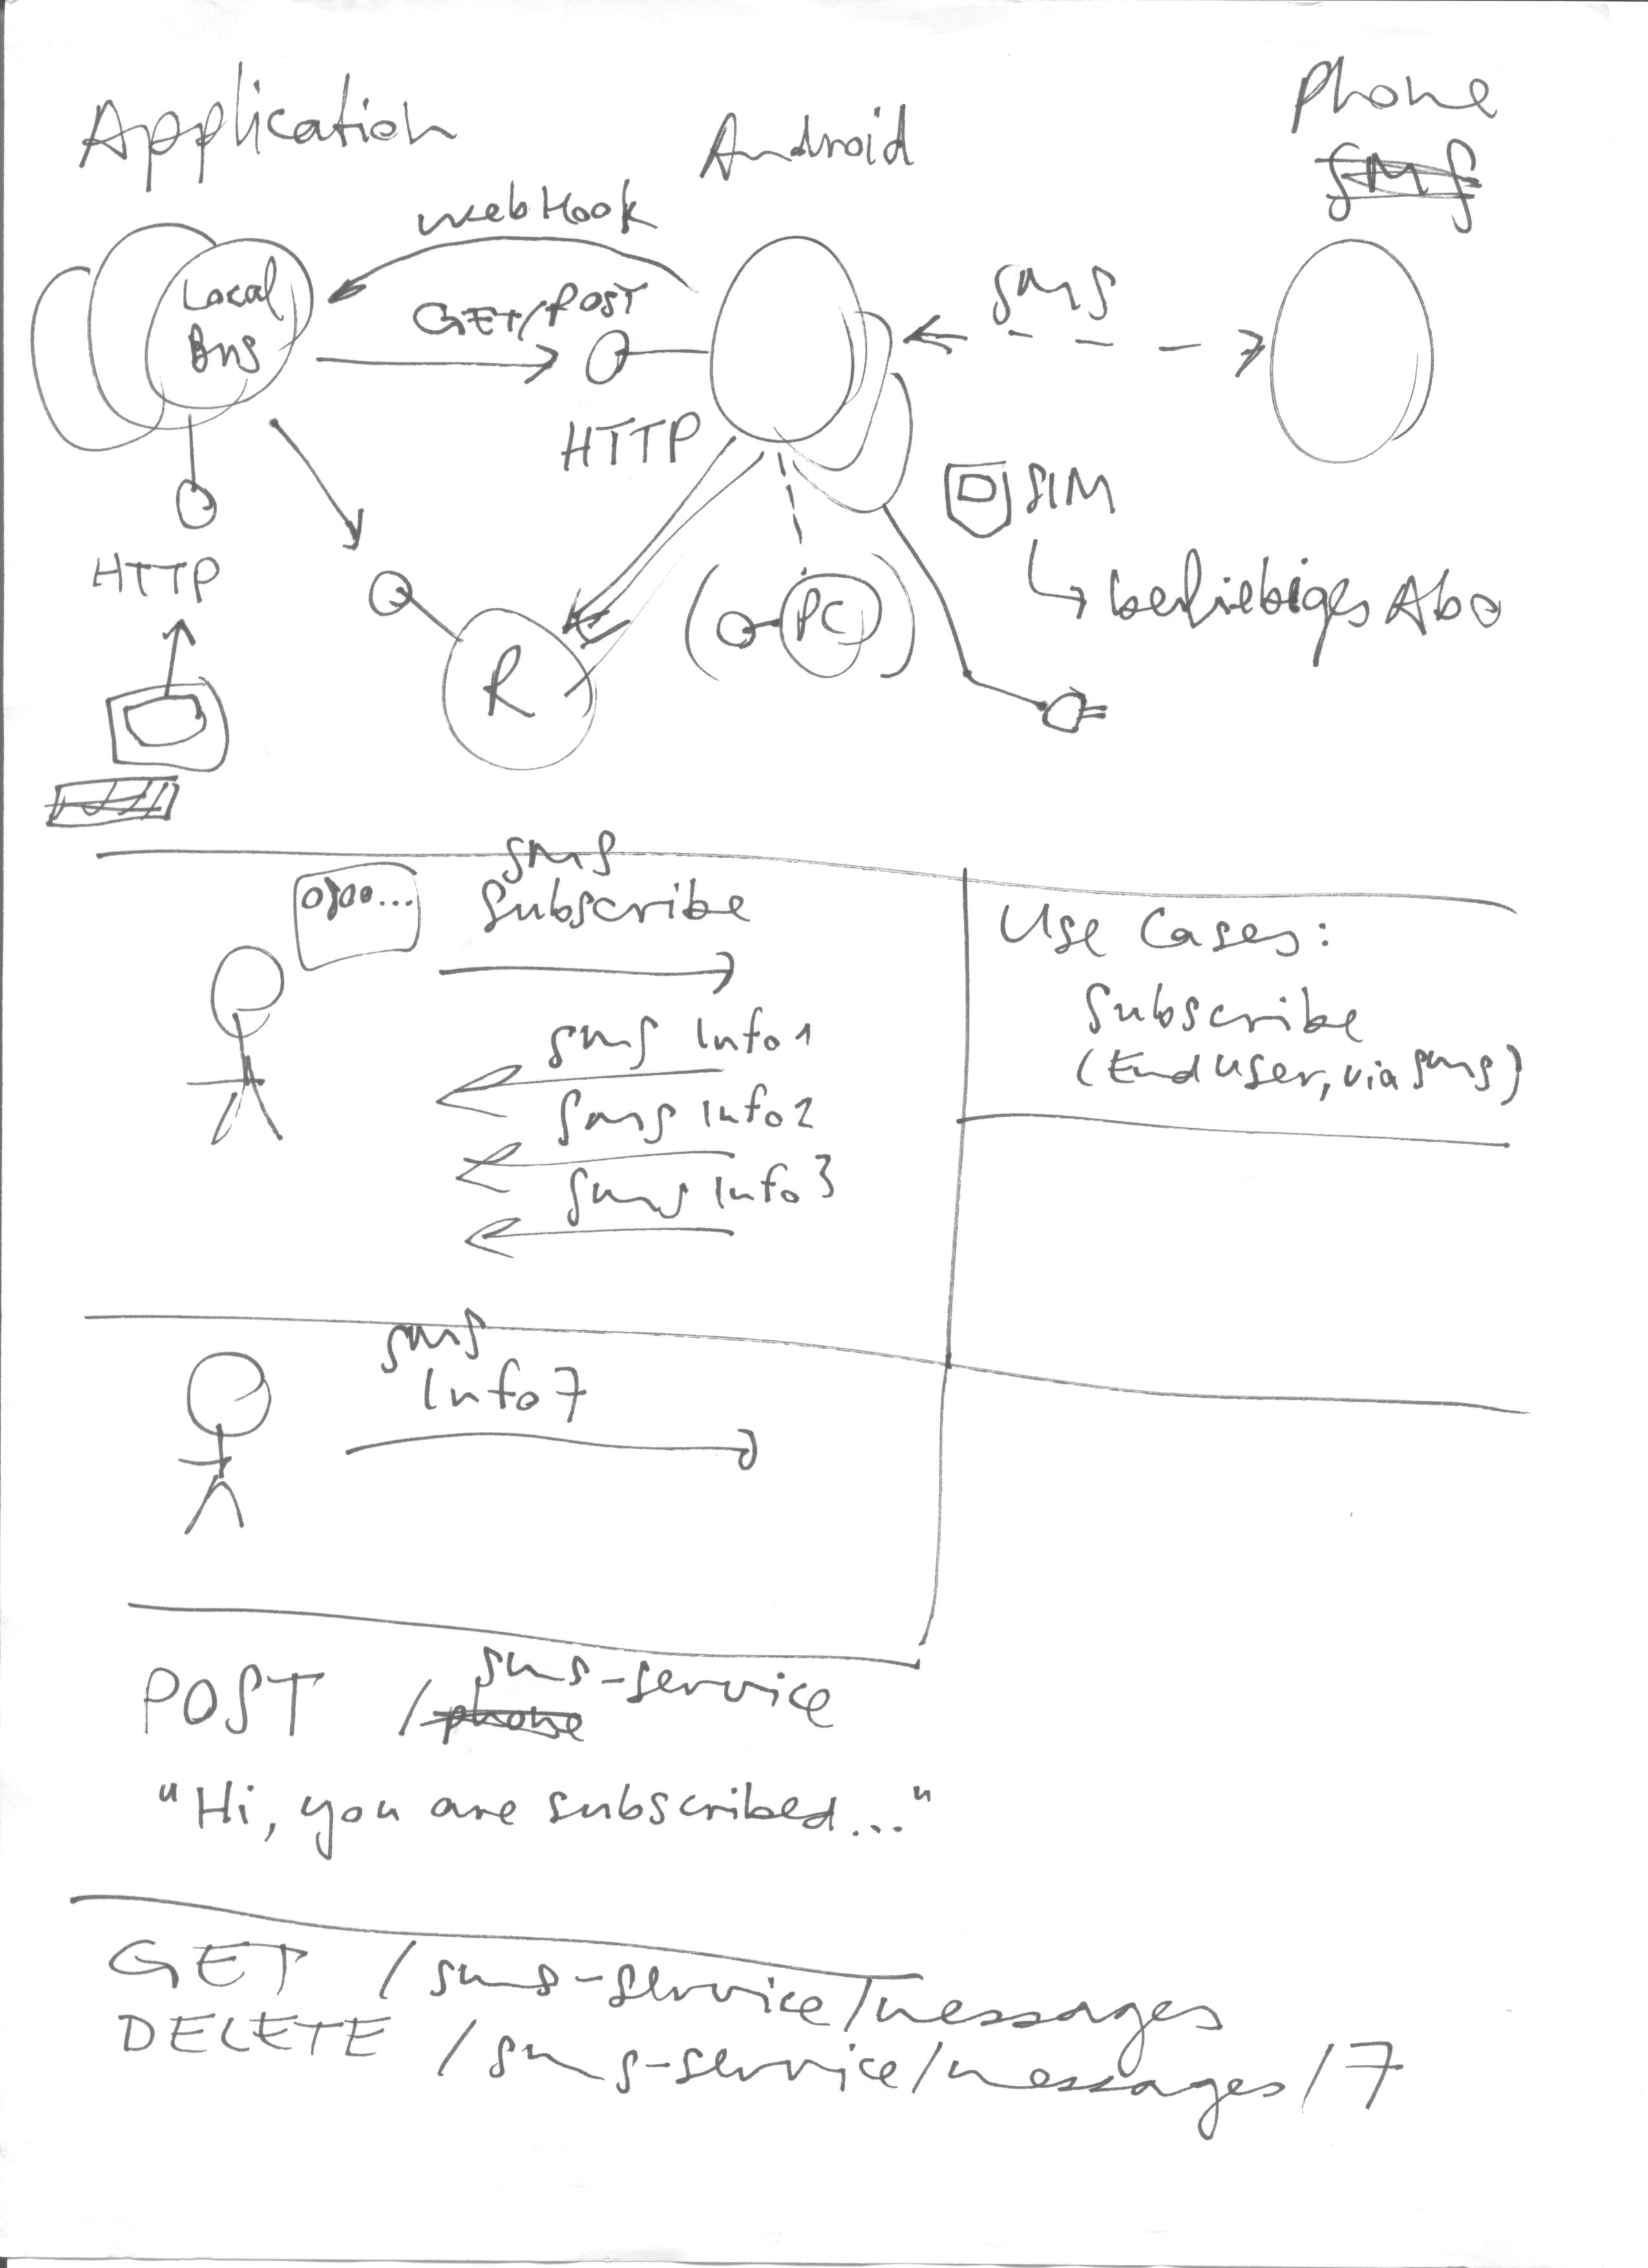 Application
Android
Phone
SMS
WebHook
Local
Bus
GET/POST
SMS
HTTP
SIM
HTTP
beliebiges Abo
PC
R
SMS
0800...
Subscribe
Use Cases:
Subscribe
(End user, via SMS)
SMS Info1
SMS Info2
SMS Info3
SMS
Info7
sms-service
POST /phone
"Hi, you are subscribed..."
GET /sms-service/messages
DELETE /sms-service/messages/7